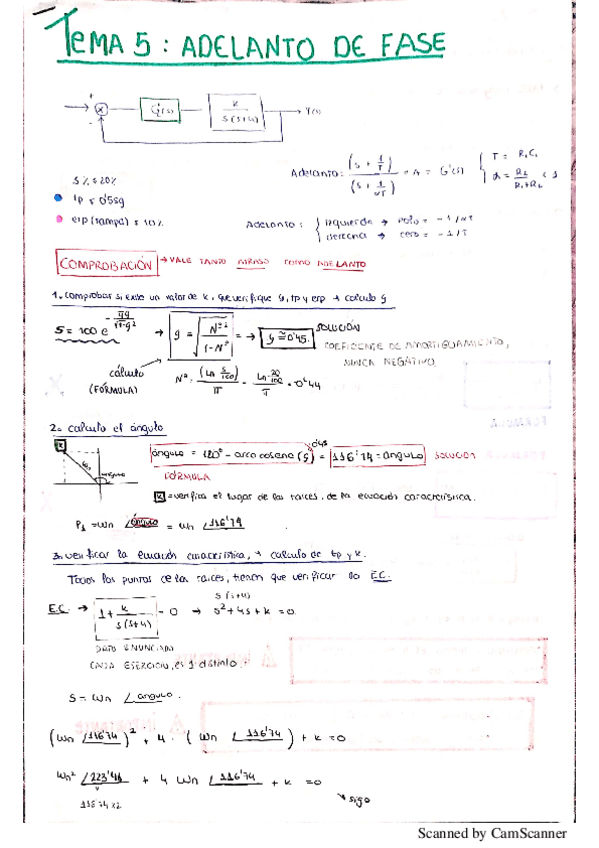 TEMA 5: ADELANTO DE FASE
+
-
G(s)
K
S(S+4)
Y(s)
S% ≤ 20%
tp ≤ 0'5sg
erp (rampa) ≤ 10%
Adelanto: (s + 1/T) / (s + 1/αT) · A = G(s) { T = R1C1
α = R2/(R1+R2) < 1
Adelanto: { izquierda → polo = -1/αT
derecha → cero = -1/T
COMPROBACIÓN → VALE TANTO ATRASO COMO ADELANTO
1. comprobar si existe un valor de k, que verifique ζ, tp y erp → calculo ζ
S = 100 e^(-πζ/√(1-ζ²)) → ζ = √(N²/(1-N²)) = → ζ ≅ 0'45. SOLUCIÓN
COEFICIENTE DE AMORTIGUAMIENTO,
NUNCA NEGATIVO.
cálculo
(FÓRMULA)
N² = (Ln S/100)/π = Ln 20/100/π = 0'44
2. calculo el ángulo
0'45
ángulo = 180° - arco coseno (ζ) = 116'74 = ángulo SOLUCIÓN
FÓRMULA
ángulo
x = verifica el lugar de las raíces, de la ecuación característica.
P1 = wn ∠ángulo = wn ∠116'74
3. verificar la ecuación característica, → calculo de tp y k.
Todos los puntos de las raíces, tienen que verificar la E.C.
S(S+4)
E.C → 1 + K/S(S+4) = 0 → S² + 4S + K = 0
DATO ENUNCIADO
CADA EJERCICIO, ES 1 DISTINTO
S = wn ∠ángulo.
(wn ∠116'74)² + 4 · (wn ∠116'74) + K = 0
wn² ∠223'48 + 4 wn ∠116'74 + K = 0
116'74 x 2
sigo
Scanned by CamScanner